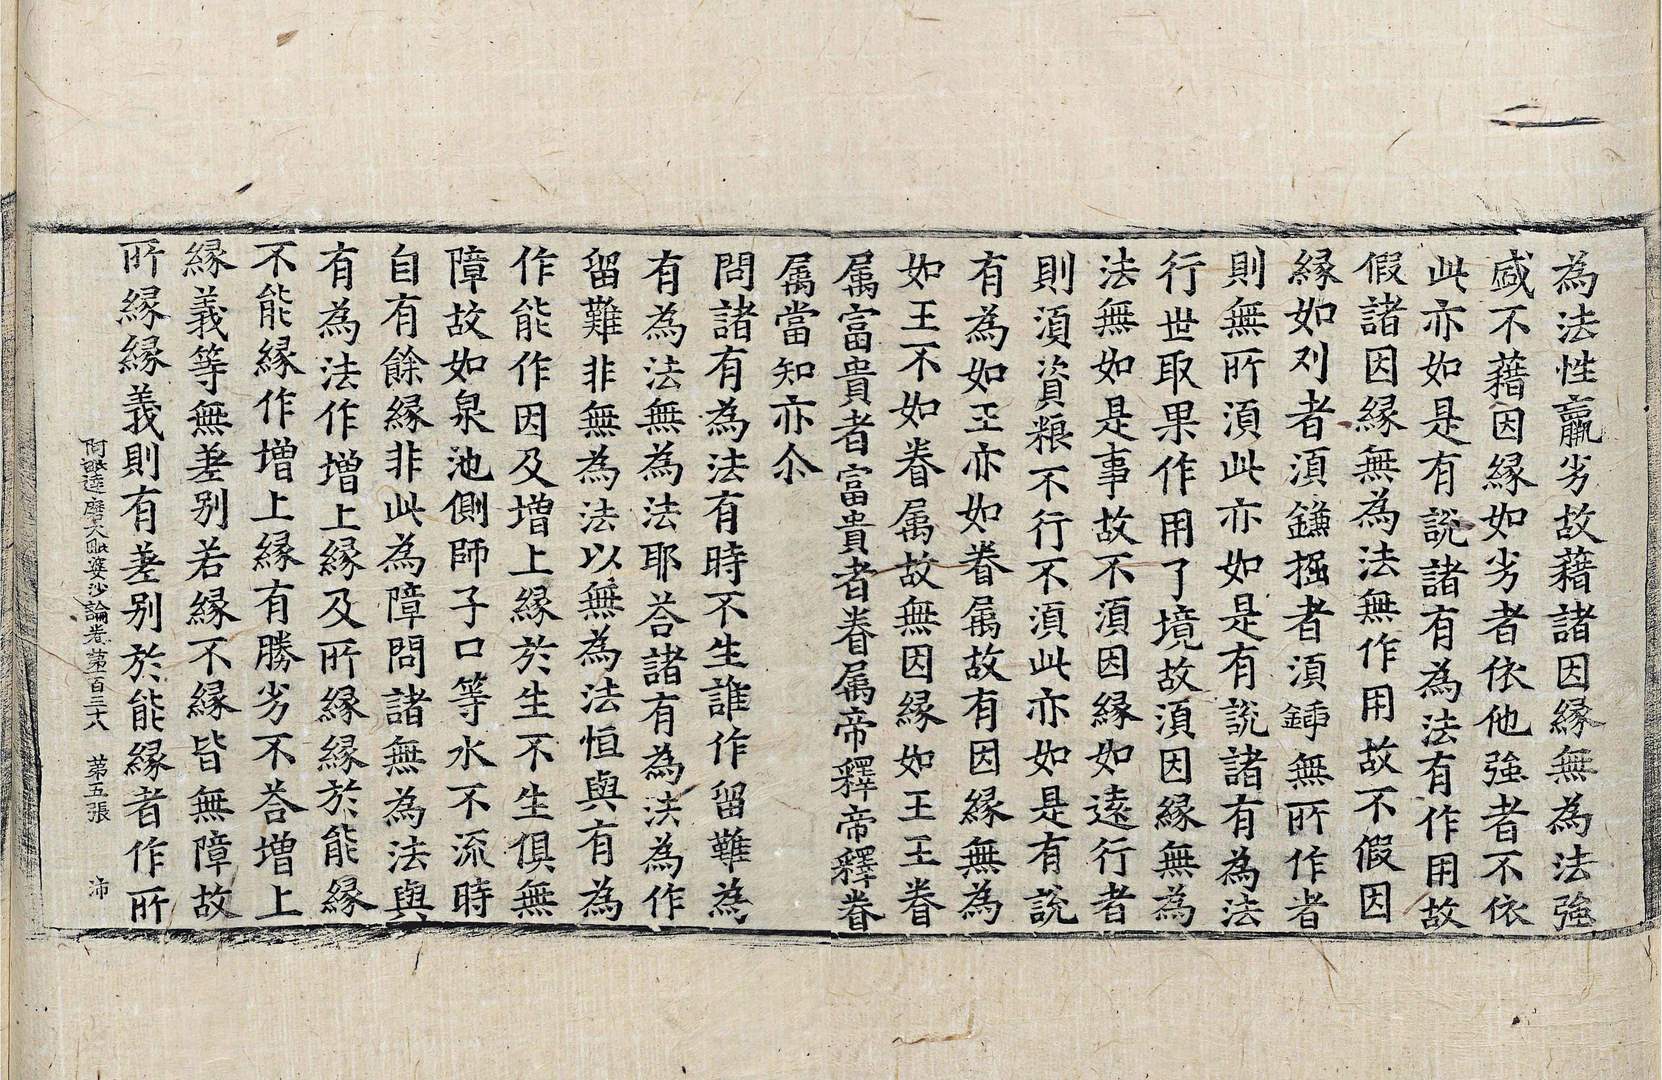 為法性羸劣故藉諸因縁無為法強
盛不藉因縁如劣者依他強者不依
此亦如是有說諸有為法有作用故
假諸因縁無為法無作用故不假因
縁如刈者須鎌掘者須鍤無所作者
則無所須此亦如是有說諸有為法
行世取果作用了境故須因縁無為
法無如是事故不須因縁如遠行者
則須資粮不行不須此亦如是有說
有為如王亦如眷属故有因縁無為
如王不如眷属故無因縁如王王眷
属富貴者富貴者眷属帝釋帝釋眷
属當知亦尒
問諸有為法有時不生誰作留難為
有為法無為法耶荅諸有為法為作
留難非無為法以無為法恒與有為
作能作因及增上縁於生不生俱無
障故如泉池側師子口等水不流時
自有餘縁非此為障問諸無為法與
有為法作增上縁及所縁縁於能縁
不能縁作增上縁有勝劣不荅增上
縁義等無差别若縁不縁皆無障故
所縁縁義則有差别於能縁者作所
阿毗達磨大毗婆沙論卷第一百三十八 第五張 沛